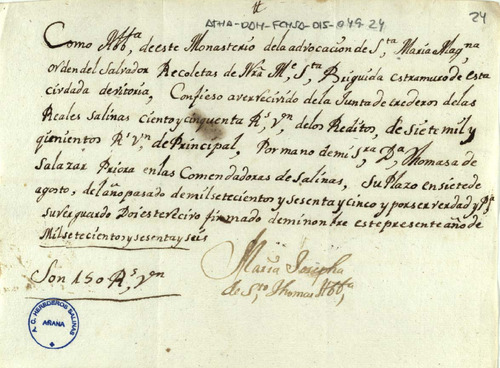 ATHA-DAH-FCHSA-015-049-24
24
Como Abb.ta deeste Monasterio dela advocacion de S.ta Maria e Mag.na
orden del Salvador Recoletas de Nrã M.e S.ta Briguida estramuros de esta
ciudad devitoria, Confieso averrecivido dela Junta de erederos delas
Reales Salinas ciento y cinquenta R.s v.n delos Reditos, de siete mil y
quinientos R.s v.n de Principal, Por mano de mi s.ra D.a Thomasa de
Salazar Priora en las Comendadoras de Salinas, Su Plazo en siete de
agosto, del año pasado de mil setecientos y sesenta y cinco y por ser verdad y P.a
su verguardo Doi este recivo firmado de mi nombre este presente año de
Mil setecientos y sesenta y seis
Son 150 R.s v.n
Maria Josepha
de S.to Thomas Abb.a
A. C. HEREDEROS SALINAS
AÑANA